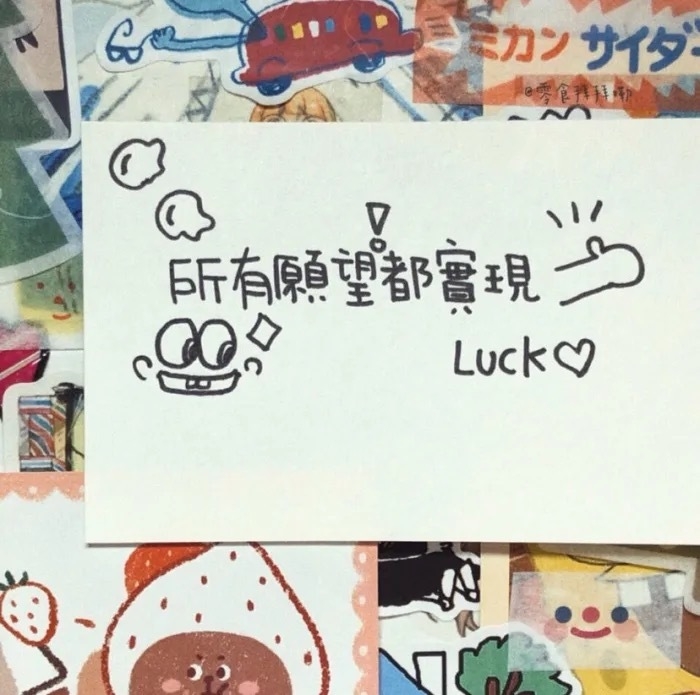 ミカン サイダー
@零食拜拜嘞
所有願望都實現
LUCK